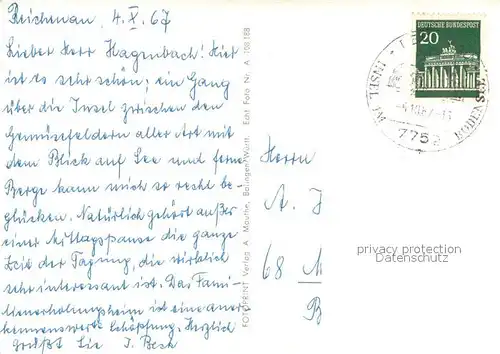 Reichenau, 4. X. 67
Lieber Herr Hagenbach! Hier
ist es sehr schön; ein Gang
über die Insel zwischen den
Gemüsefeldern aller Art mit
dem Blick auf See und ferne
Berge kann mich so recht be-
glücken. Natürlich gehört außer
einer Mittagspause, die ganze
Zeit der Tagung, die wirklich
sehr interessant ist. Das Fami-
lienerholungsheim ist eine aner-
kennenswerte Schöpfung. Herzlich
grüßt Sie J. Beck
FOTOPRINT Verlag A. Mauthe, Balingen-Württ. Echt Foto Nr. A
DEUTSCHE BUNDESPOST
20
INSEL IM BODENSEE
7752
Herrn
A. J
68 M
B
privacy protection
Datenschutz